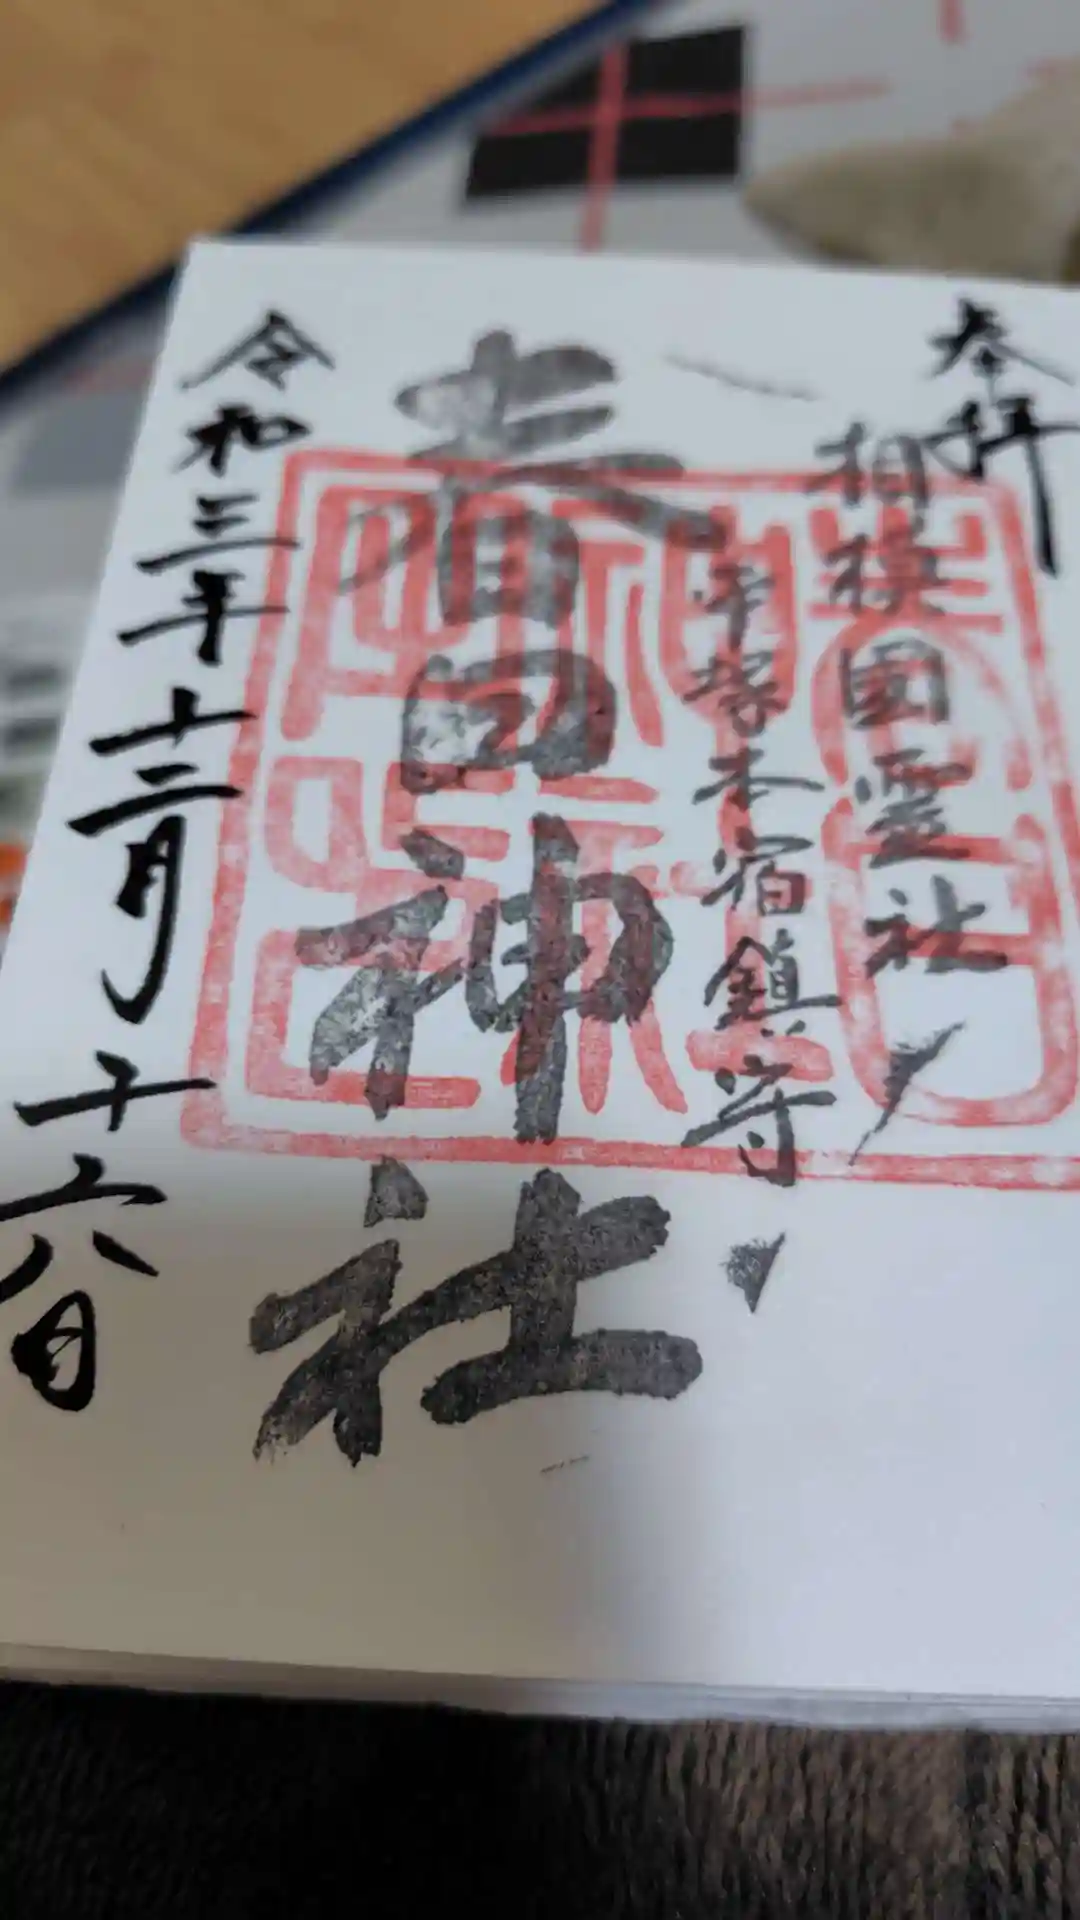 奉拝
相模國霊社
平塚本宿鎮守
春日神社
令和三年十二月十六日